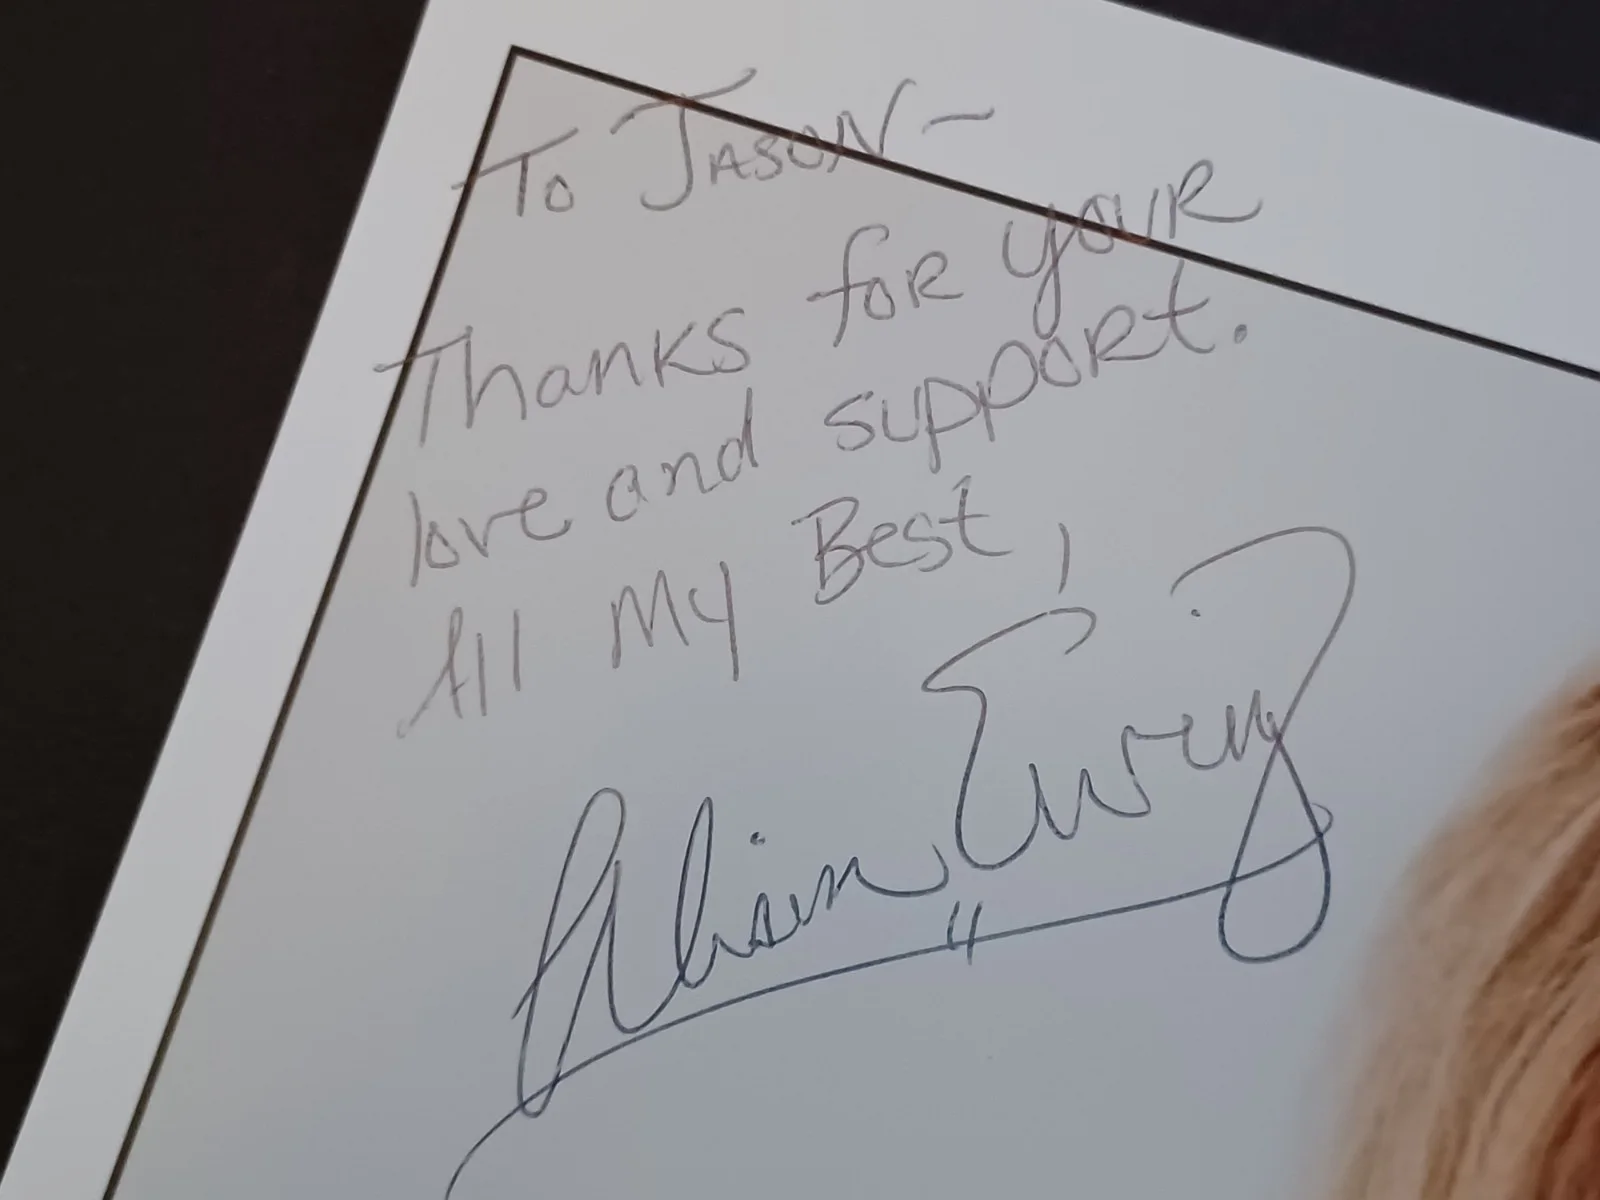 To JASON-
Thanks for your
love and support.
All My Best,
Alison Ewing